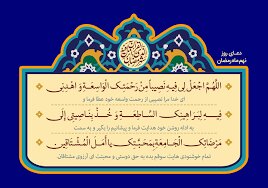 دعای روز
نهم ماه رمضان
اللَّهُمَّ اجْعَل لِي فِيهِ نَصِيباً مِنْ رَحْمَتِكَ الْوَاسِعَةِ وَ اهْدِنِي
ای خدا مرا نصیبی از رحمت واسعه خود عطا فرما و
فِيهِ لِبَرَاهِينِكَ السَّاطِعَةِ وَ خُذْ بِنَاصِيَتِي إِلَى
به ادله روشن خود هدایت فرما و پیشانیم را بگیر و به سمت
مَرْضَاتِكَ الْجَامِعَةِ بِمَحَبَّتِكَ يَا أَمَلَ الْمُشْتَاقِينَ
تمام خوشنودی هایت سوقم بده به حق دوستی و محبتت ای آرزوی مشتاقان